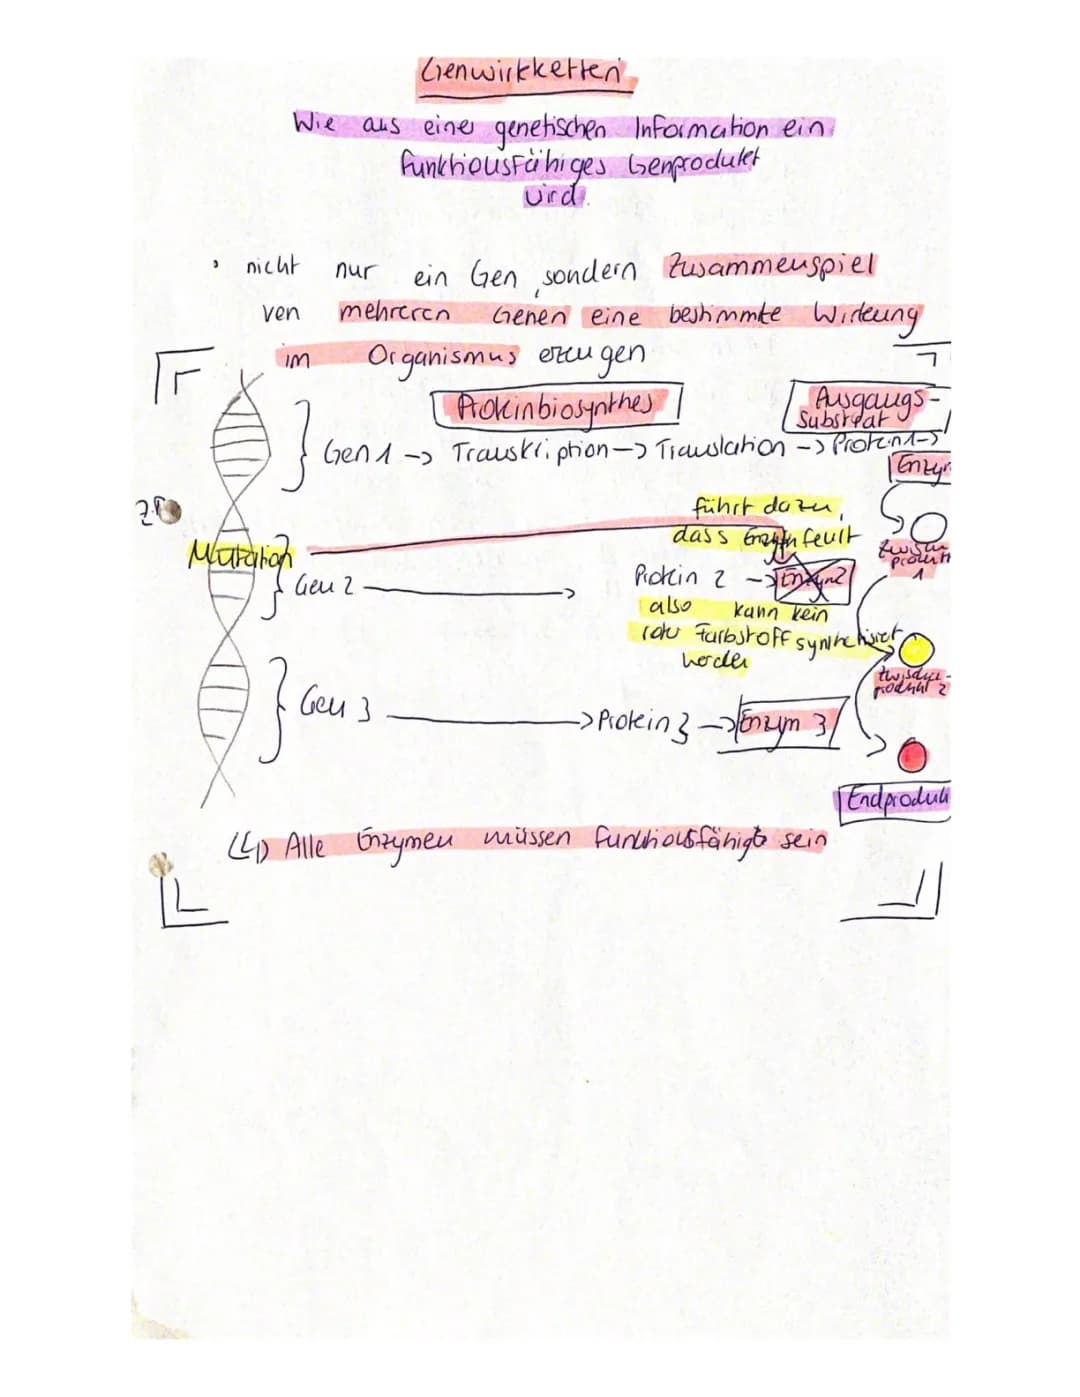 Genwirkketten
Wie aus einer genetischen Information ein
funktionsfähiges Genprodukt
wird.
nicht nur ein Gen, sondern Zusammenspiel
von mehreren Genen eine bestimmte Wirkung
im Organismus erzeugen
Proteinbiosynthes
Ausgangs-
Substrat
Gen 1 -> Transkription -> Translation -> Protein 1 ->
Enzym
z.B
führt dazu,
dass Enzym feult
Mutation
zwischen
produkt
1
Gen 2 -> Protein 2 -> Enzym 2
also kann kein
roter Farbstoff synthetisiert
werden
zwischen-
produkt 2
Gen 3 -> Protein 3 -> Enzym 3
Endproduk
↳ Alle Enzymen müssen funktionsfähig sein